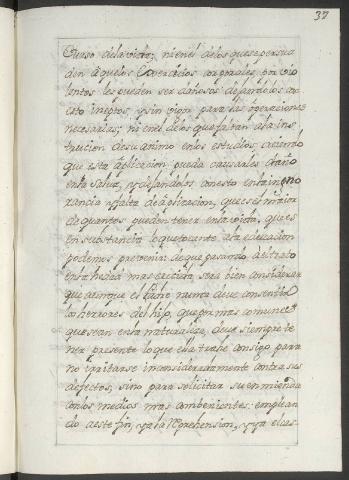 37
Curso dela vida; ni en el delos que se persua
den aquelos Exercicios corporales por vio
lentos les pueden ser dañosos dejandolos con
esto ineptos, y sin vigor para las operaciones
necesarias; ni en el delos que faltan ala ins
truccion desu animo enlos estudios creiendo
que esta aplicacion pueda causarles daño
enla salud, y dejandolos con esto enla igno
rancia y falta de aplicacion, que es el maior
de quantos pueden tener enla vida, que es
en substancia lo que tocante ala educacion
podemos prevenir: de que pasando al trato
enla hedad mas crecida, sera bien considerar
que aunque el Padre nunca deve consentir
los herrores del hijo, que por mas comunes
que sean enla naturaleza, deve siempre te
ner presente lo que ella trahe consigo para
no irritarse inconsideradamente contra sus
defectos, sino para solicitar su enmienda
conlos medios mas combenientes: emplean
do aeste fin, ya la reprehension, y ya el cas